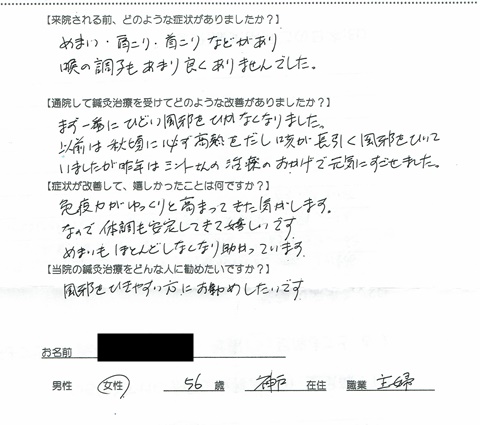 【来院される前、どのような症状がありましたか？】
めまい・肩こり・首こりなどがあり
喉の調子もあまり良くありませんでした。
【通院して鍼灸治療を受けてどのような改善がありましたか？】
まず一番にひどい風邪をひかなくなりました。
以前は秋頃に必ず高熱をだし咳が長引く風邪をひいて
いましたが昨年はミントさんの治療のおかげで元気にすごせました。
【症状が改善して、嬉しかったことは何ですか？】
免疫力がゆっくりと高まってきた気がします。
なので体調も安定してきて嬉しいです
めまいもほとんどしなくなり助かっています。
【当院の鍼灸治療をどんな人に勧めたいですか？】
風邪をひきやすい方にお勧めしたいです
お名前
男性 女性 56 歳 神戸 在住 職業 主婦